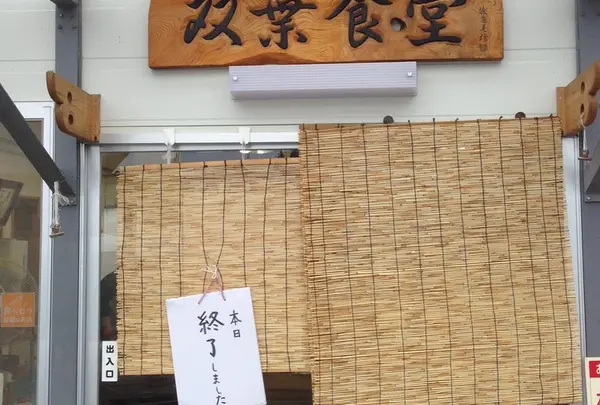 双葉食堂
本日
終了しました
出入口